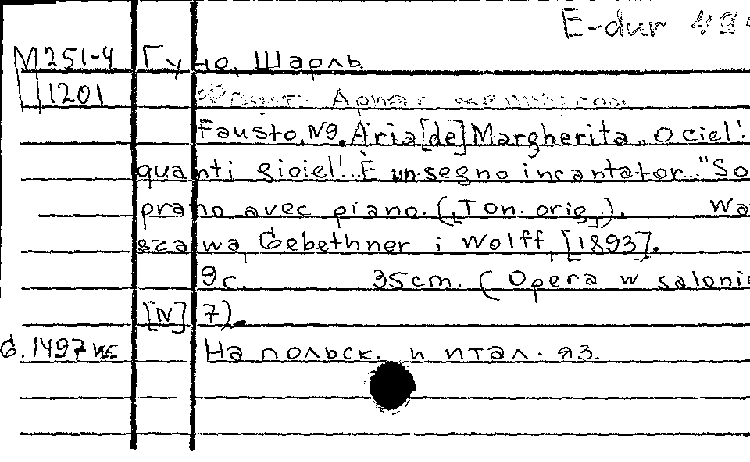 E-dur
М251-4 Гуно, Шарль
1201
Fausto, N9. Aria [de] Margherita „O ciel!
quanti gioiel!.. È un segno incantator." So
prano avec piano. („Ton. orig„). Wa
szawa, Gebethner i Wolff, [1893].
9c. 35cm. (Opera w saloni
[N] 7).
На польск. и итал. яз.